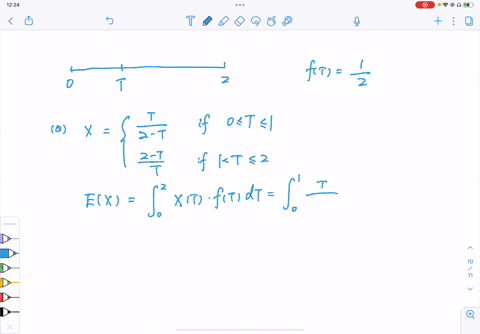 12:24
0 T 2
f(T) = 1/2
(a) X = { T/(2-T) if 0≤T≤1
(2-T)/T if 1<T≤2
E(X) = ∫₀² X(T)·f(T) dT = ∫₀¹ T/
10
/
11